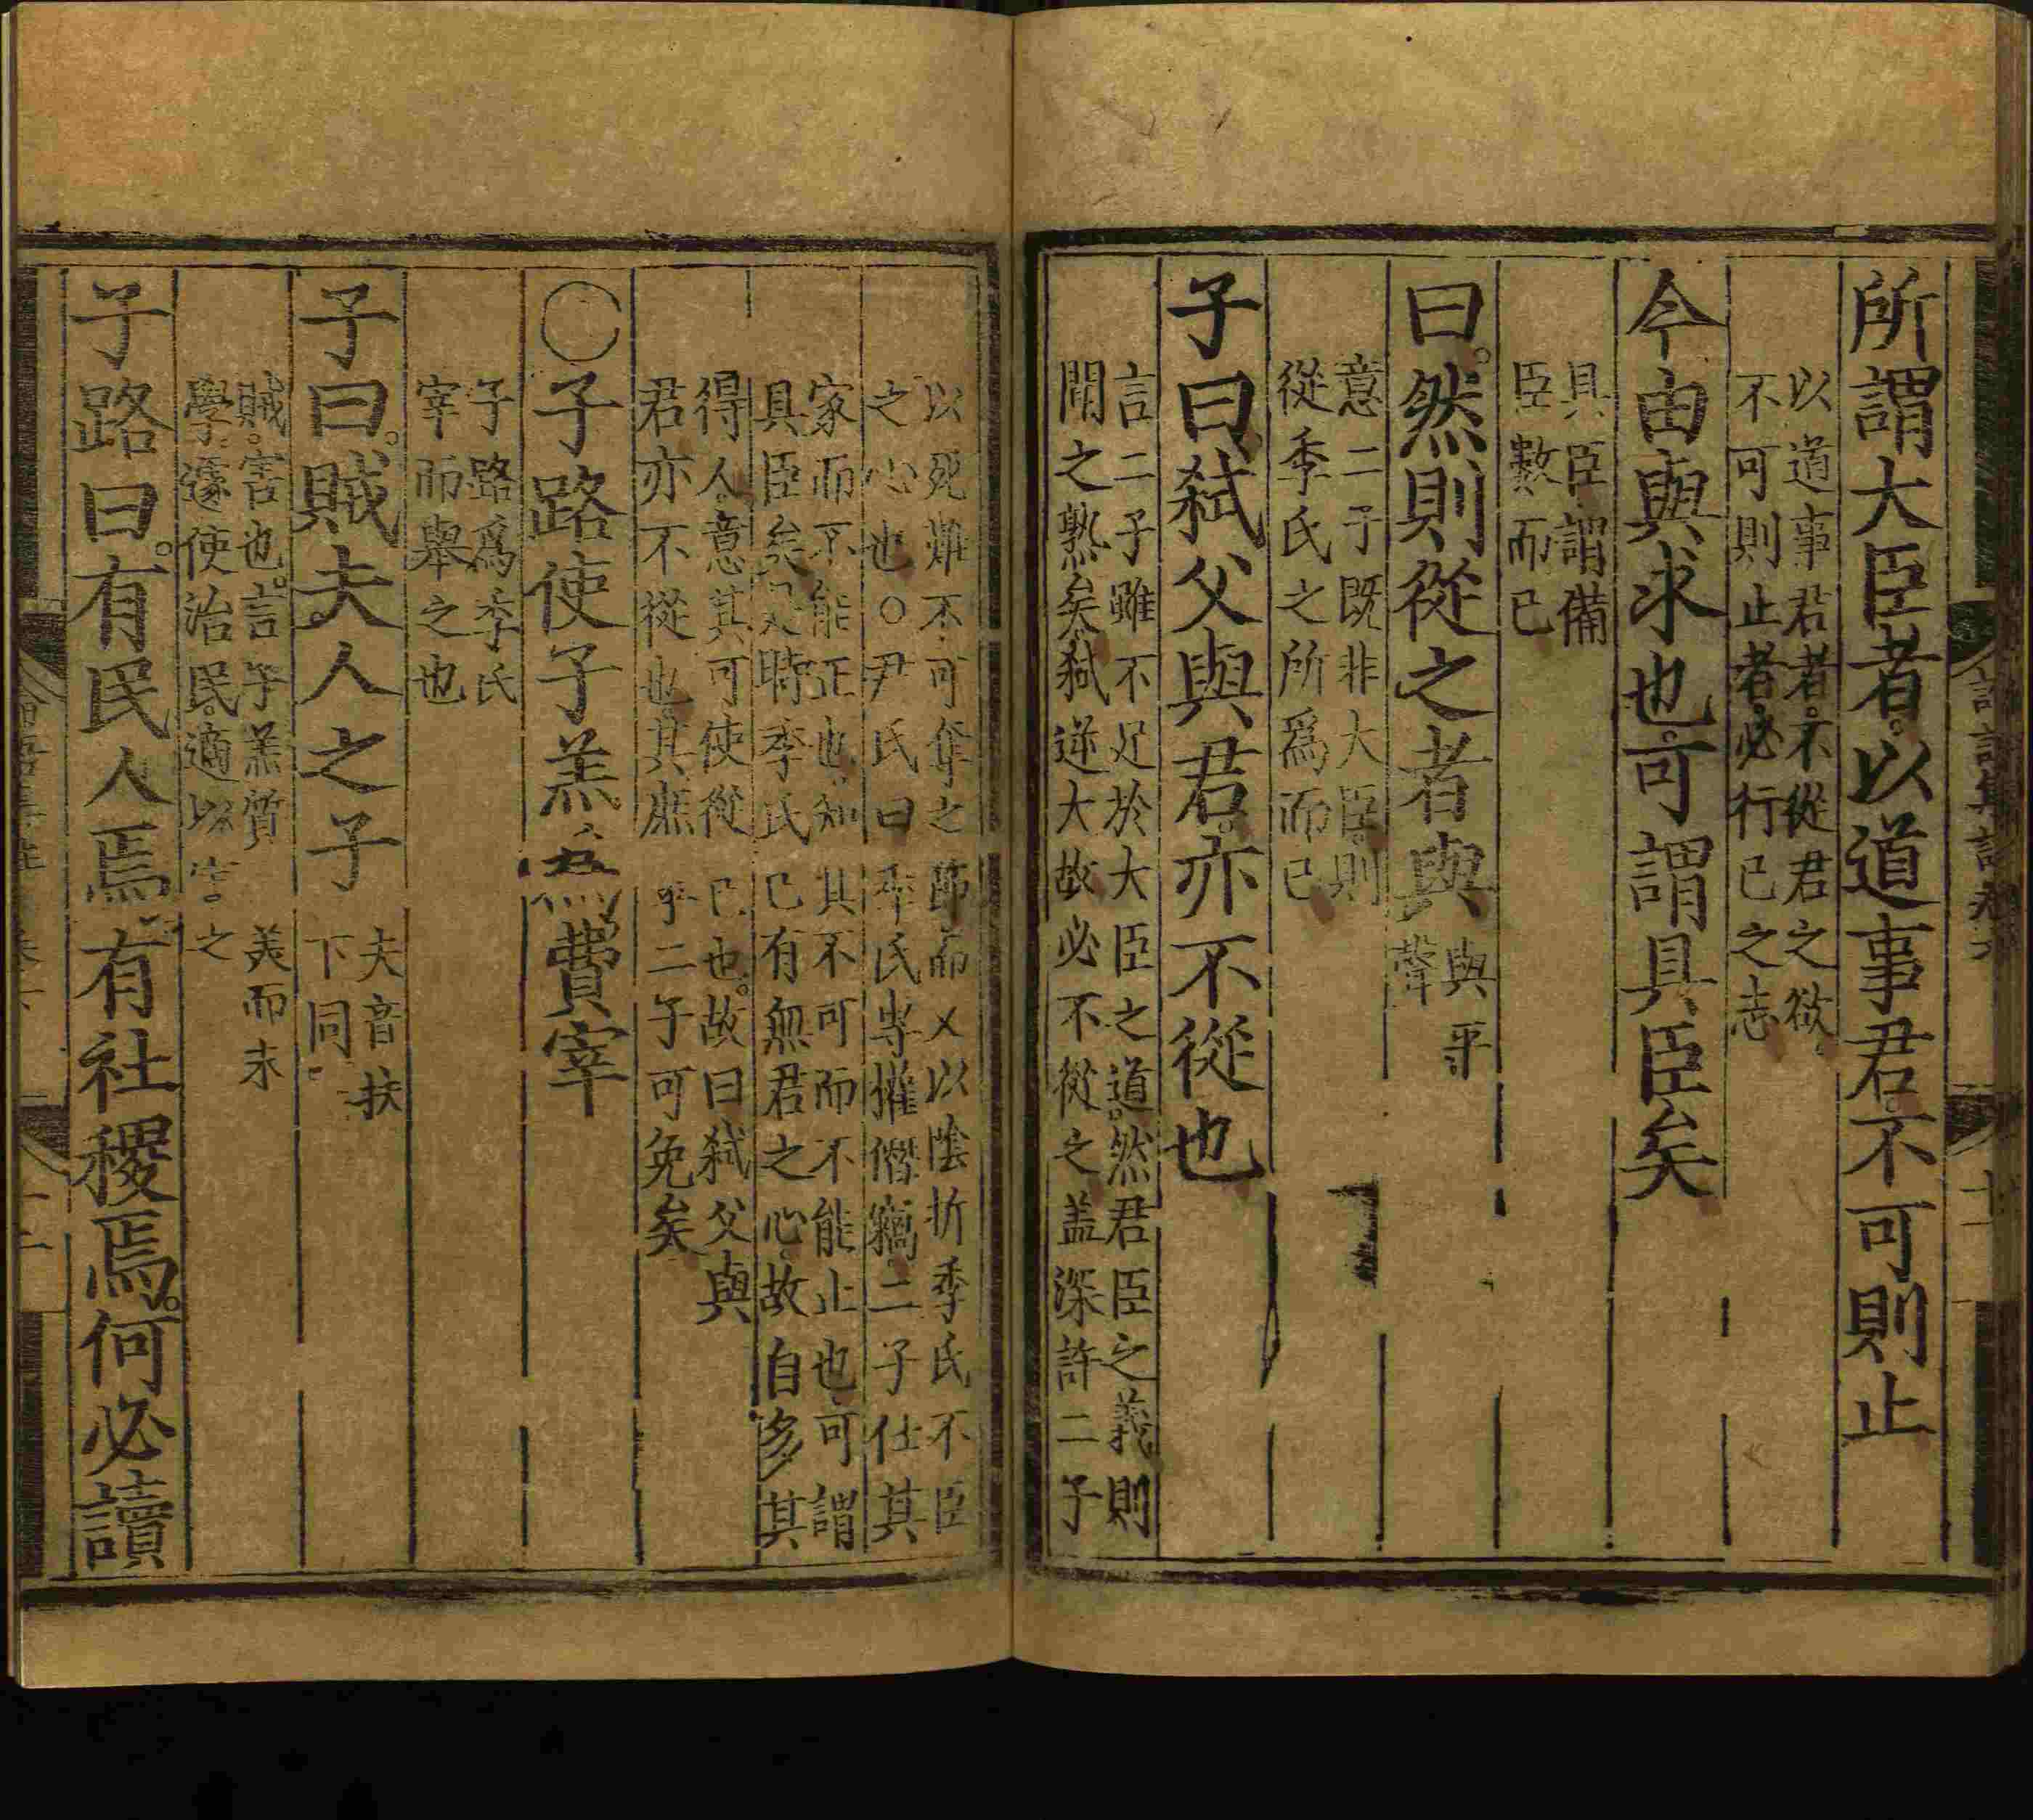 所謂大臣者以道事君不可則止
以道事君者不從君之欲
不可則止者必行己之志
今由與求也可謂具臣矣
具臣謂備
臣數而已
曰然則從之者與
與平
聲
意二子既非大臣則
從季氏之所爲而已
子曰弒父與君亦不從也
言二子雖不足於大臣之道然君臣之義則
聞之熟矣弒逆大故必不從之盖深許二子
以死難不可奪之節而又以陰折季氏不臣
之心也○尹氏曰季氏專權僭竊二子仕其
家而不能正也知其不可而不能止也可謂
具臣矣是時季氏已有無君之心故自多其
得人意其可使從己也故曰弒父與
君亦不從也其庶乎二子可免矣
○子路使子羔爲費宰
子路爲季氏
宰而舉之也
子曰賊夫人之子
夫音扶
下同
賊害也言子羔質美而未
學遽使治民適以害之
子路曰有民人焉有社稷焉何必讀